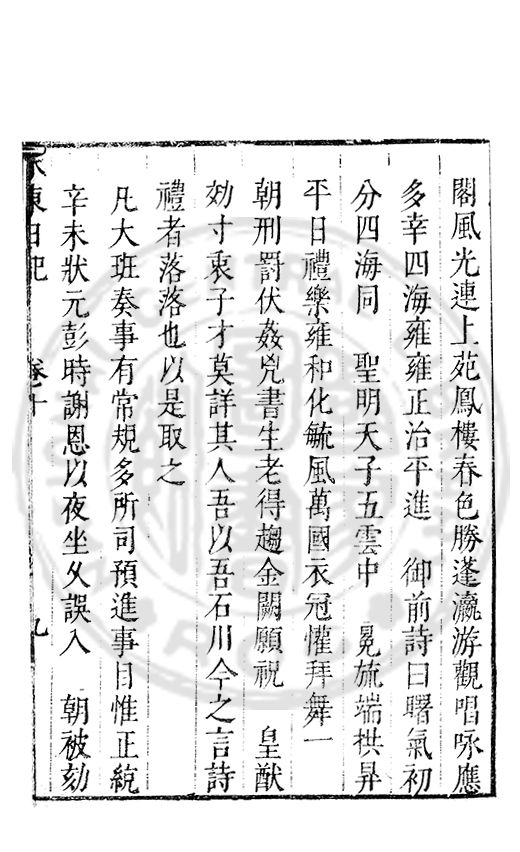 閣風光連上苑鳳樓春色勝蓬瀛游觀唱咏應
多幸四海雍雍正治平進　御前詩曰曙氣初
分四海同　聖明天子五雲中　冕旒端拱昇
平日禮樂雍和化毓風萬國衣冠懽拜舞一
朝刑罰伏姦兇書生老得趨金闕願祝　皇猷
効寸衷子才莫詳其人吾以吾石川今之言詩
禮者落落也以是取之
凡大班奏事有常規多所司預進事目惟正統
辛未狀元彭時謝恩以夜坐久誤入　朝被劾
水東日記　卷十　九